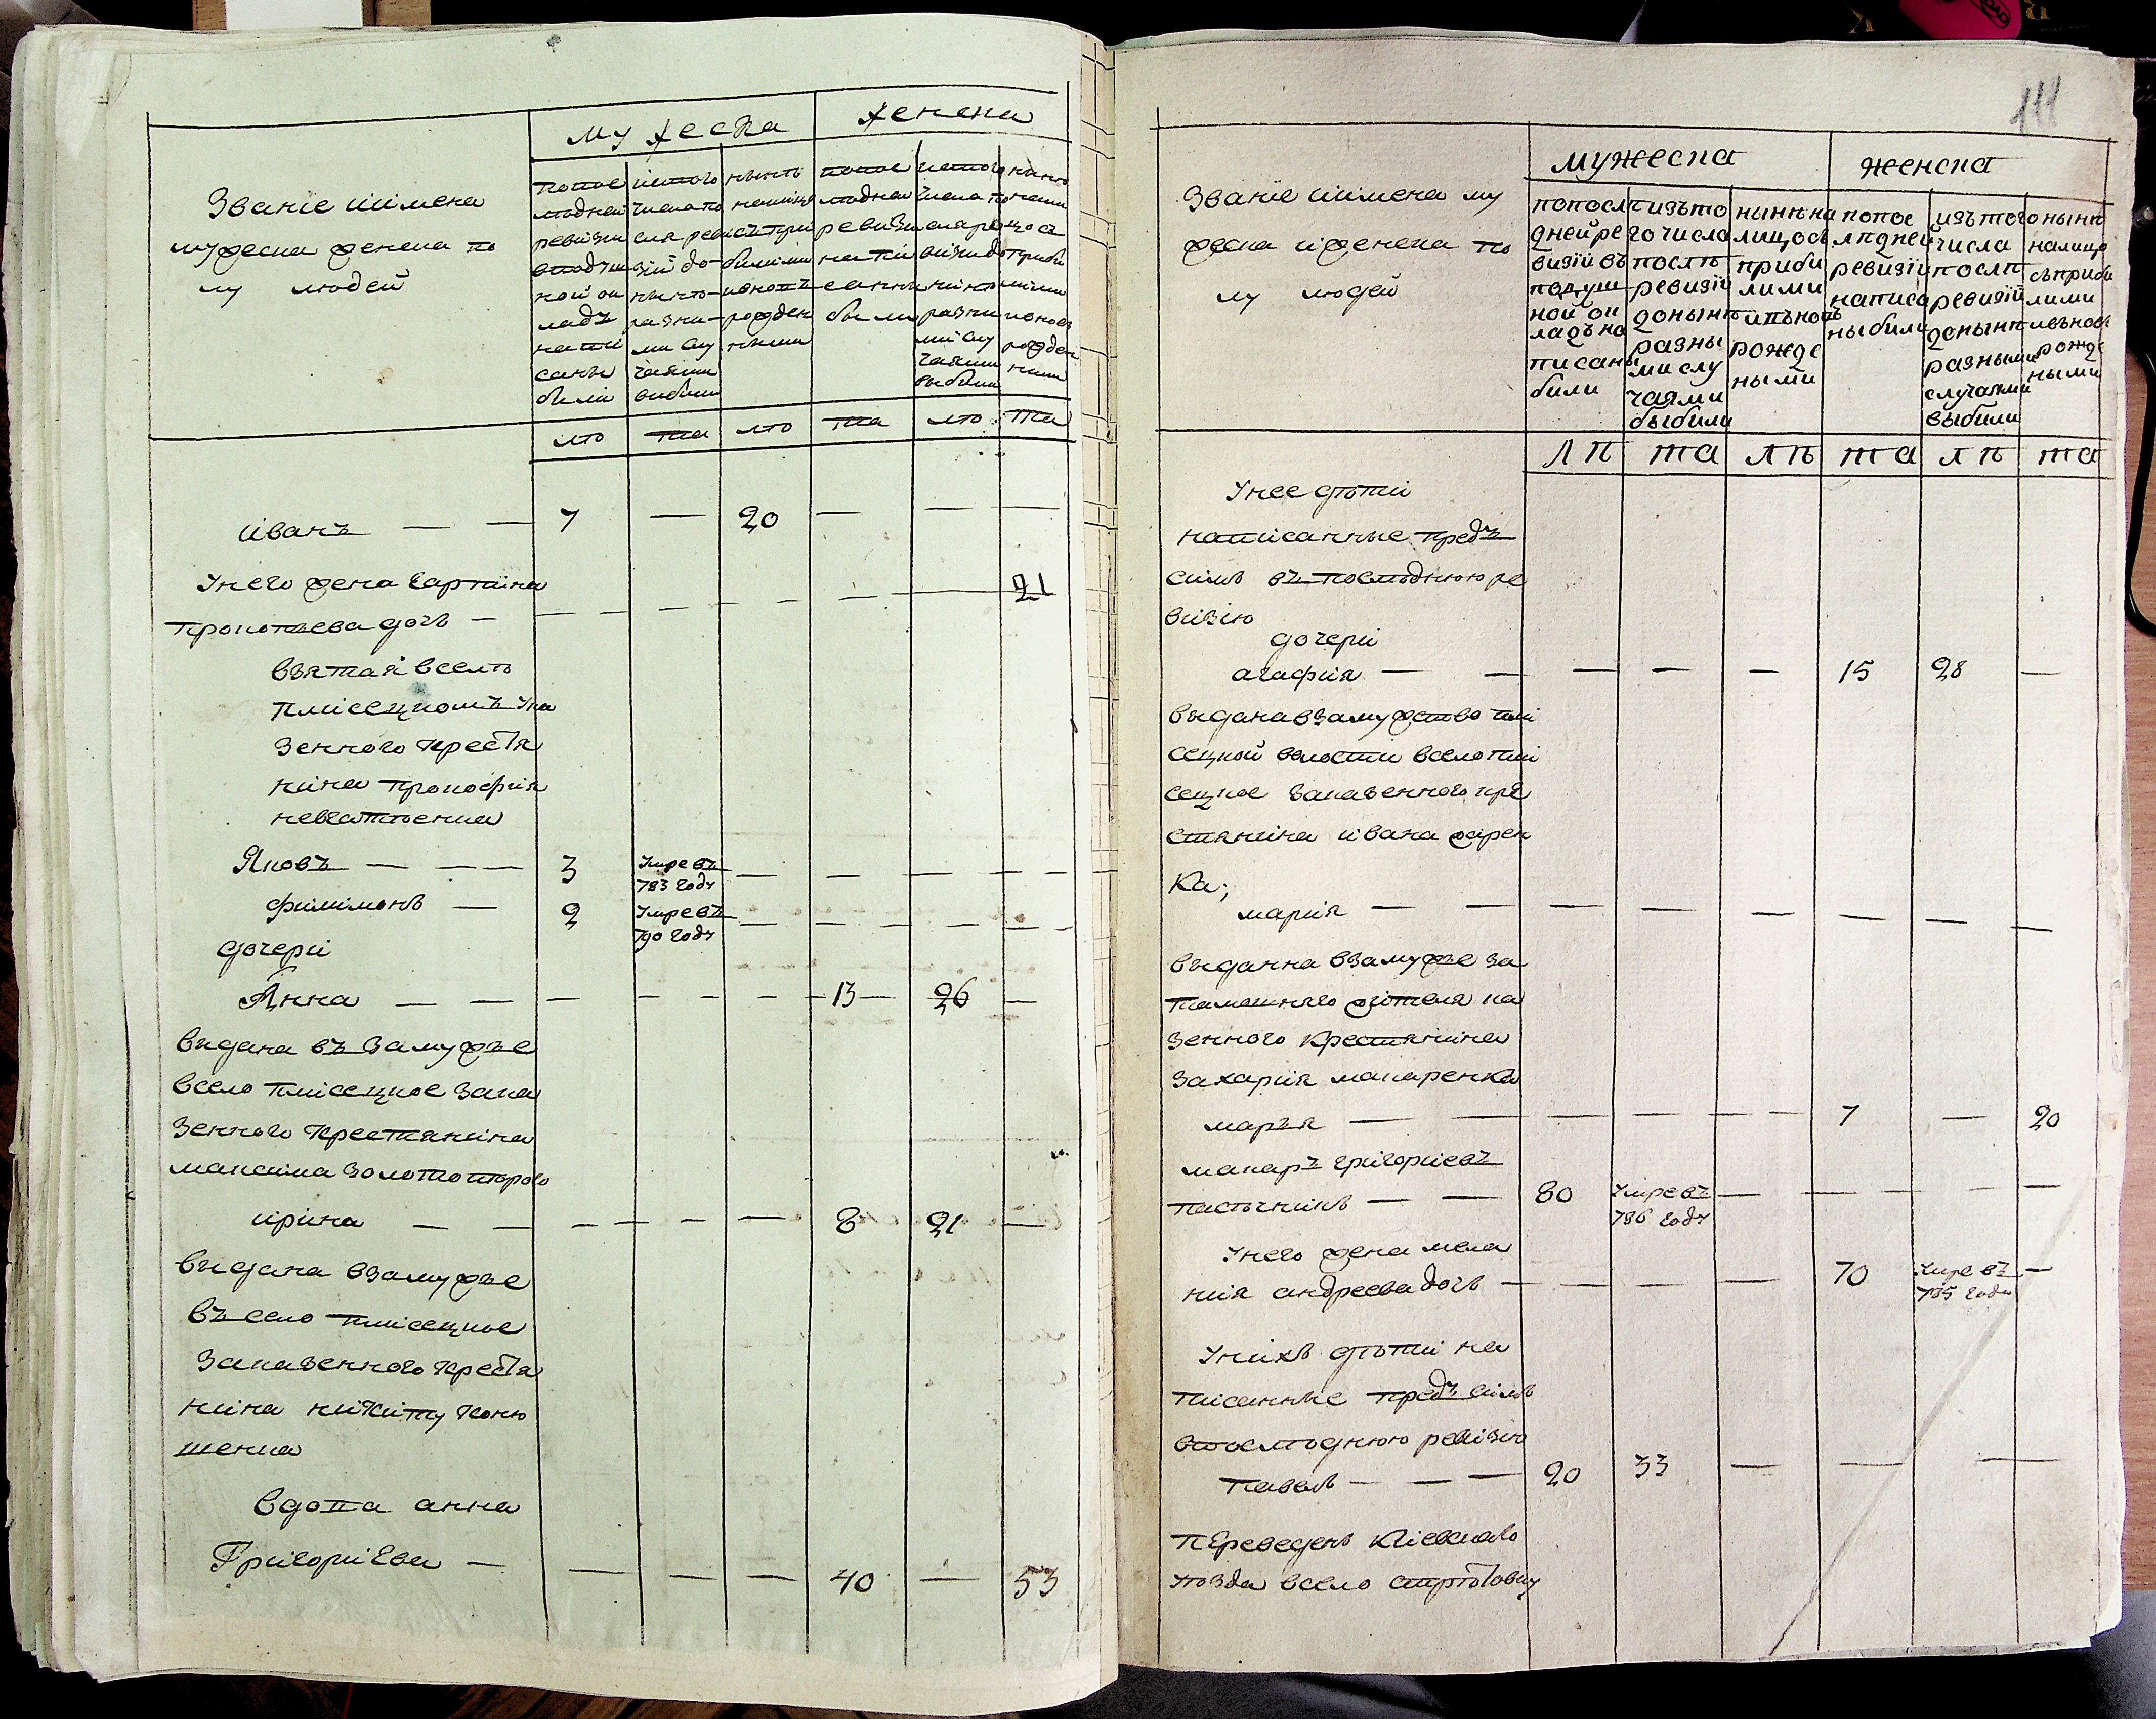 мужеска
женска
Званіе иимена
мужеска женска по
лу людей
попос
лѣдней
ревизіи
вподуш
ной ок
ладъ
напи
саны
были
изтого
числа по
слѣ реви
зіи до
нынѣ
разны
ми слу
чаями
выбыли
нынѣ
налицо
съ при
былыми
ивновь
рожден
ными
попос
лѣдней
ревизіи
напи
санны
были
изтого
числа по
слѣ ре
визіи до
нынѣ
разны
ми слу
чаями
выбыли
нынѣ
нали
цо съ
прибы
лыми
ивновь
рожден
ными
лѣ та лѣ та лѣ та
иванъ — — 7 — 20 — — —
Унего жена
прокопьева дочь — — — — — — 21
взятая всель
плисецкомъ ука
зенного крестя
нина прокофия
Яковъ — — — 3 Умре въ 783 году — — — —
филимонъ — 2 Умре въ 790 году — — — —
дочери
Анна — — — — — 13 26 —
выдана въ замужъе
всело плисецкое зака
зенного крестянина
максима золотоптрого
ирина — — — — — 8 21 —
выдана взамужъе
въ село плисецкое
заказенного крестя
нина никиту коню
шенка
вдова анна
Григориева — — — — 40 — 53
111
мужеска
женска
Званіе иимена му
жеска иженска по
лу людей
попослѣ
дней ре
визіи въ
подуш
ной ок
ладъ на
писаны
били
изъ то
го числа
послѣ
ревизіи
донынѣ
разны
ми слу
чаями
выбили
нынѣ на
лицо съ
приби
лими
ивъновь
рожде
ными
попос
лѣдней
ревизіи
написа
ны били
изъ того
числа
послѣ
ревизіи
донынѣ
разными
случаями
выбили
нынѣ
налицо
съ приби
лими
ивъновь
рожде
ными
лѣ та лѣ та лѣ та
Унее дѣти
написанные предъ
симъ въ последнюю ре
визію
дочери
агафия — — — — — 15 28 —
выдана взамужство пли
сецкой волости всело пли
сецкое заказенного кре
стянина ивана
ка;
мария — — — — — — — —
выданна взамужъе за
тамошнего жителя ка
зенного крестянина
захария макаренка
марья — — — — — 7 — 20
макаръ григориевъ
пасѣчникъ — — 80 Умре въ 786 году — — — —
Унего жена мела
ния андреева дочь — — — — 70 Умре въ 785 году —
Унихъ дѣти на
писанные предъ симъ
впоследнюю ревизію
павелъ — — — 20 33 — — —
переведенъ киевскаго
уезда всело